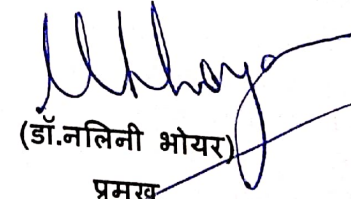 (डॉ.नलिनी भोयर)
प्रमुख